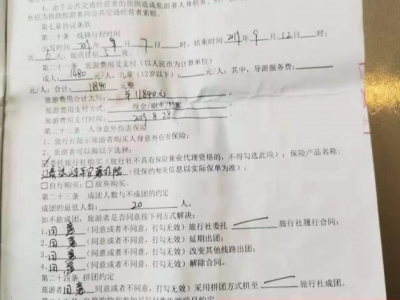 1、由于公共交通经营者的原因造成旅游者人身
应协助旅游者向公共交通经营者索赔。
第七章协议条款
第二十条 线路行程时间
出发时间 年9月7日 时，结束时间 年9月12日 时；
共6天，饭店住宿5夜。
第二十一条 旅游费用及支付（以人民币为计算单位）
成人： 元/人，儿童（12岁以下）： 元/人；其中，导游服务费：
元/人；合计：11840元整
旅游费用合计大写：￥11840元
旅游费用支付方式：
旅游费用支付时间：
第二十二条 人身意外伤害保险
1、旅行社提示旅游者购买人身意外伤害保险；
2、旅游者可以做以下选择：
委托旅行社购买（旅行社不具有保险兼业代理资格的，不得勾选此项），保险产品名称：
（投保的相关信息以实际保单为准）；
□自行购买；□放弃购买。
第二十三条 成团人数与不成团的约定
成团的最低人数：20 人。
如不能成团，旅游者是否同意按下列方式解决：
1、同意（同意或者不同意，打勾无效）旅行社委托 旅行社履行合同；
2、同意（同意或者不同意，打勾无效）延期出团；
3、同意（同意或者不同意，打勾无效）改变其他线路出团；
4、同意（同意或者不同意，打勾无效）解除合同。
第二十四条 拼团约定
旅游者同意（同意或者不同意，打勾无效）采用拼团方式拼至 旅行社成团。